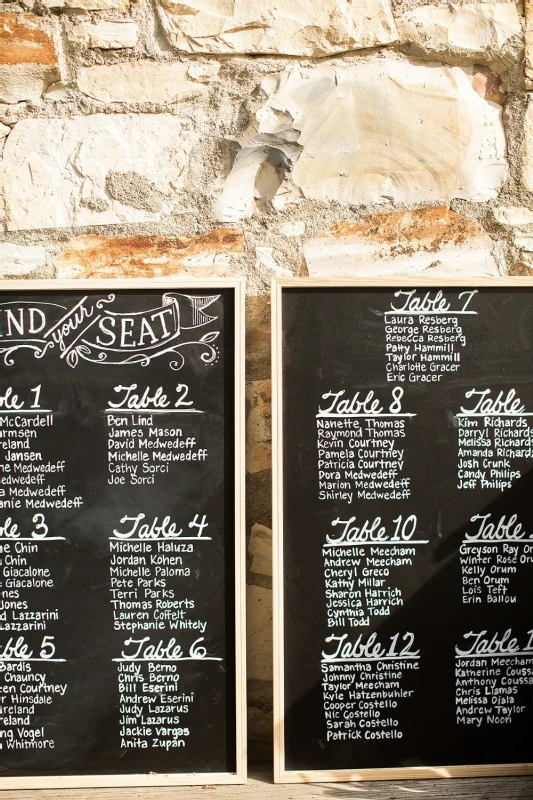 your
SEAT
Table 2
Ben Lind
James Mason
David Medwedeff
Michelle Medwedeff
Cathy Sorci
Joe Sorci
1
McCardell
Jansen
Medwedeff
Medwedeff
Medwedeff
Medwedeff
3
Chin
Chin
Giacalone
Giacalone
Jones
Lazzarini
Lazzarini
Table 4
Michelle Haluza
Jordan Kohen
Michelle Paloma
Pete Parks
Terri Parks
Thomas Roberts
Lauren Coffelt
Stephanie Whitely
5
Bardis
Chauncy
Courtney
Hinsdale
Ireland
Vogel
Whitmore
Table 6
Judy Berno
Chris Berno
Bill Eserini
Andrew Eserini
Judy Lazarus
Jim Lazarus
Jackie Vargas
Anita Zupan
Table 7
Laura Resberg
George Resberg
Rebecca Resberg
Patty Hammill
Taylor Hammill
Charlotte Gracer
Eric Gracer
Table 8
Nanette Thomas
Raymond Thomas
Kevin Courtney
Pamela Courtney
Patricia Courtney
Dora Medwedeff
Marion Medwedeff
Shirley Medwedeff
Table
Kim Richards
Darryl Richards
Melissa Richards
Amanda Richards
Josh Crunk
Candy Philips
Jeff Philips
Table 10
Michelle Meecham
Andrew Meecham
Cheryl Greco
Kathy Millar
Sharon Harrich
Jessica Harrich
Cynthia Todd
Bill Todd
Table
Greyson Ray
Winter Rose
Kelly Orum
Ben Orum
Lois Teft
Erin Ballou
Table 12
Samantha Christine
Johnny Christine
Taylor Meecham
Kyle Hatzenbuhler
Cooper Costello
Nic Costello
Sarah Costello
Patrick Costello
Table
Jordan Meecham
Katherine
Anthony
Chris Llamas
Melissa Ojala
Andrew Taylor
Mary Noon